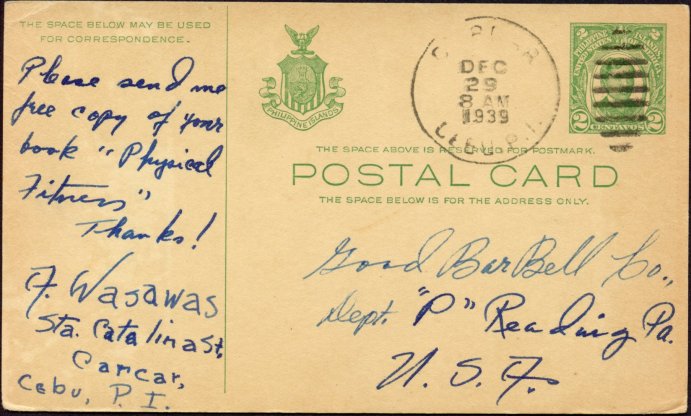 THE SPACE BELOW MAY BE USED
FOR CORRESPONDENCE.
Please send me
free copy of your
book "Physical
Fitness"
Thanks!
F. Wasawas
Sta. Catalina St,
Carcar,
Cebu, P. I.
PHILIPPINE ISLANDS
DEC
29
8 AM
1939
CEBU, P.I.
PHILIPPINE ISLANDS
UNITED STATES OF
2 CENTAVOS 2
THE SPACE ABOVE IS RESERVED FOR POSTMARK.
POSTAL CARD
THE SPACE BELOW IS FOR THE ADDRESS ONLY.
Good BarBell Co.,
Dept. "P" Reading Pa.
U. S. A.